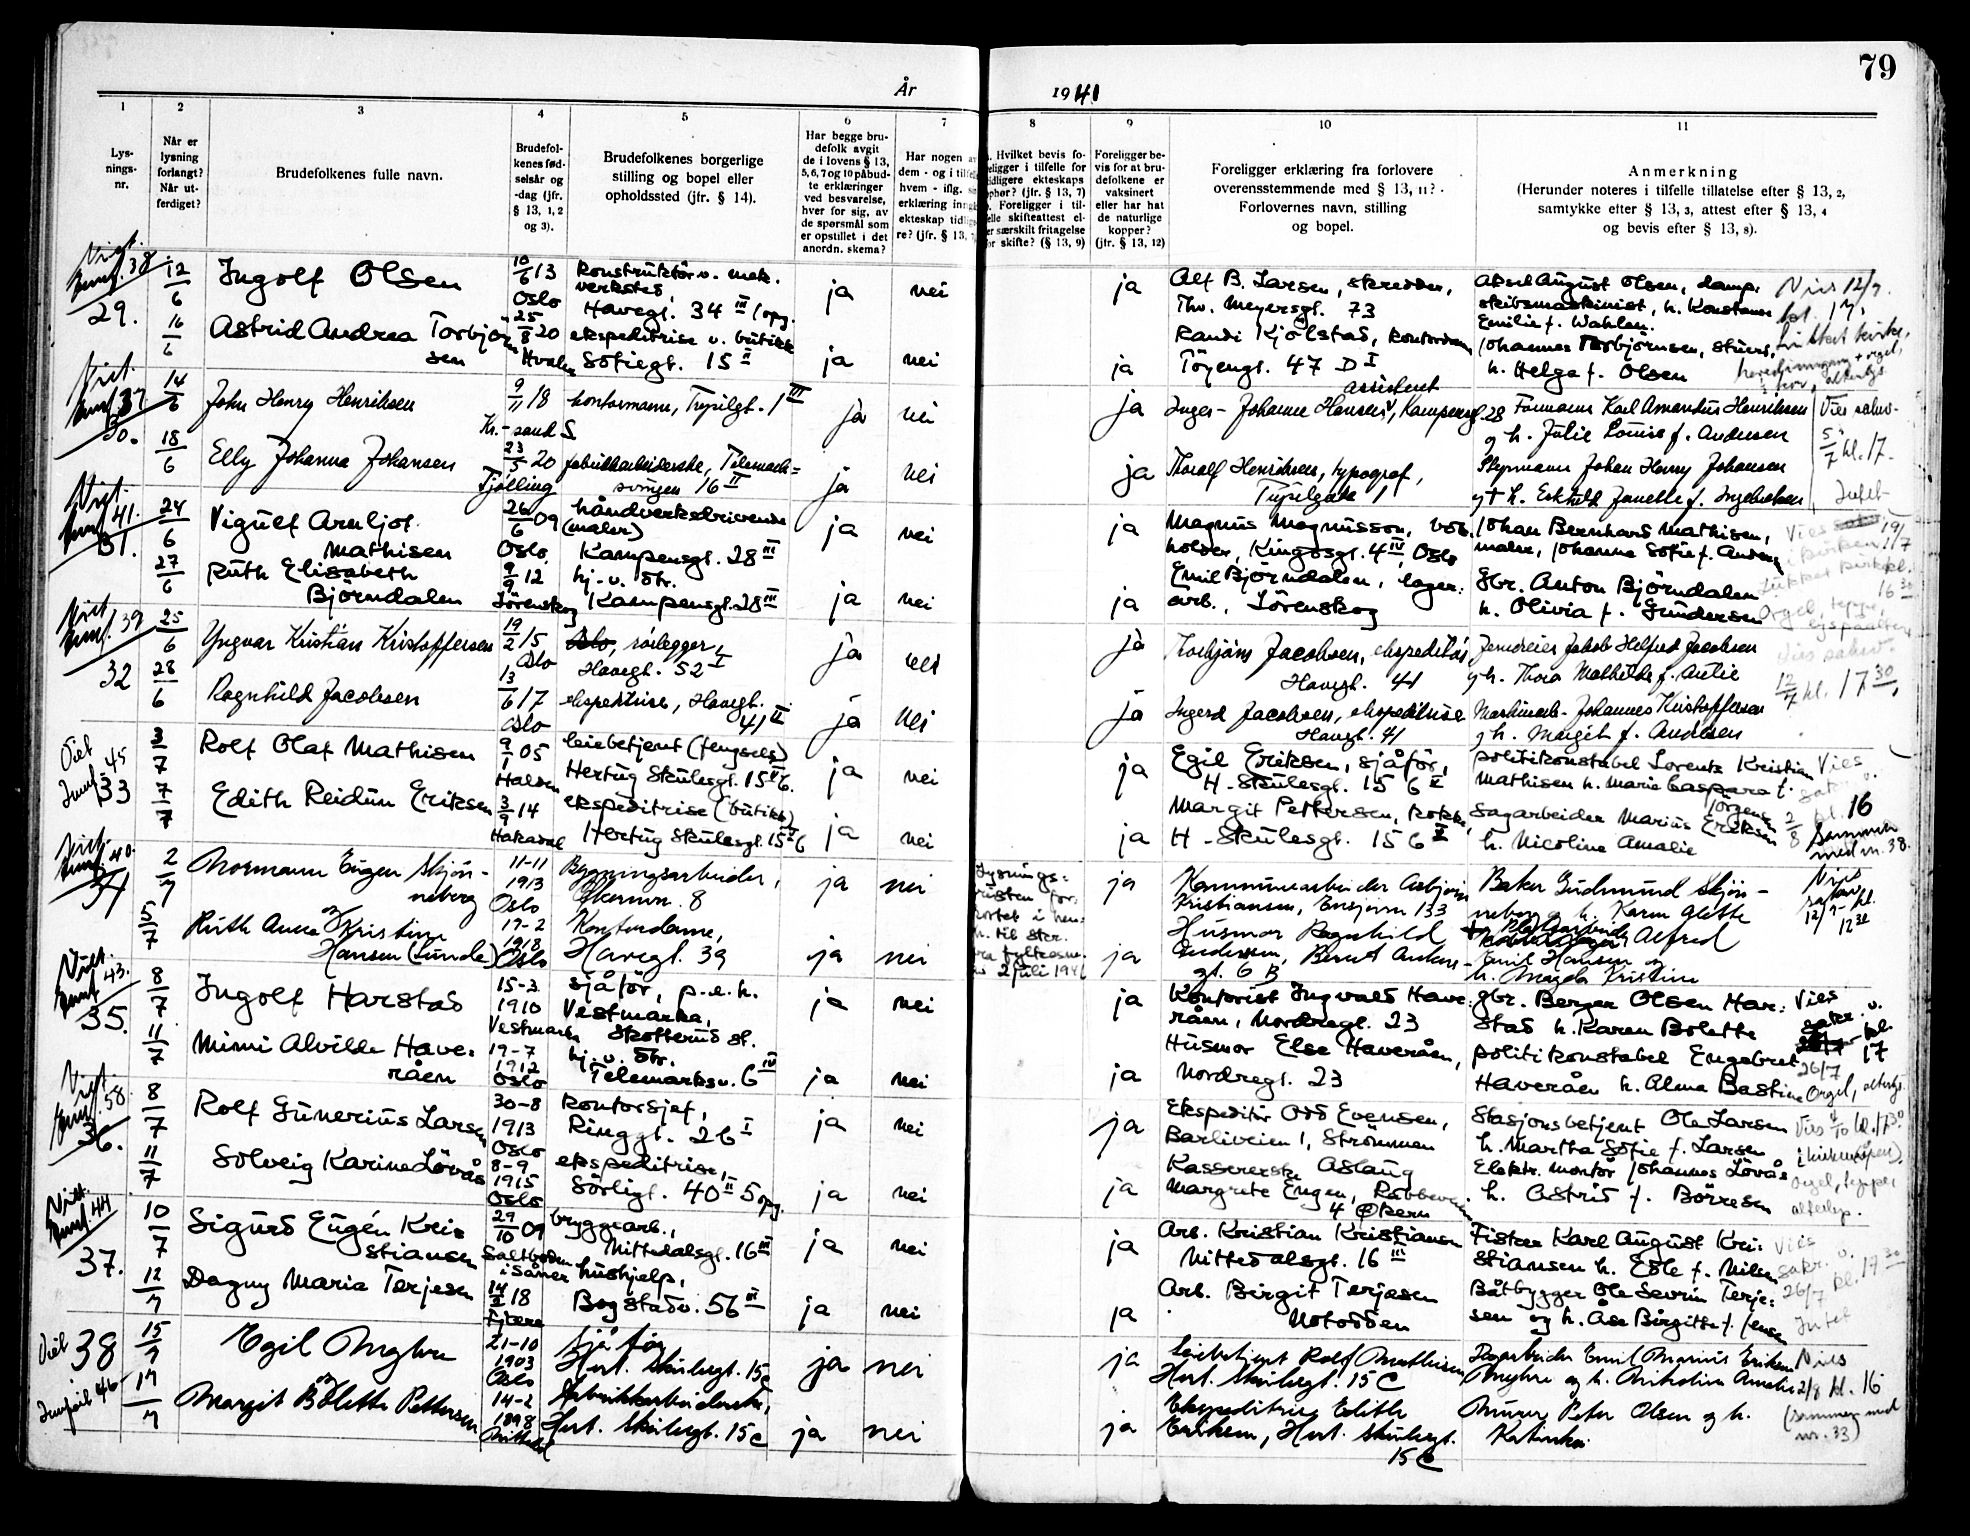 79
År 1941
1
Lys-
nings-
nr.
2
Når er
lysning
forlangt?
Når ut-
ferdiget?
3
Brudefolkenes fulle navn.
4
Brudefol-
kenes fød-
selsår og
-dag (jfr.
§ 13, 1, 2
og 3).
5
Brudefolkenes borgerlige
stilling og bopel eller
opholdssted (jfr. § 14).
6
Har begge bru-
defolk avgit
de i lovens § 13,
5, 6, 7 og 10 påbud-
te erklæringer
ved besvarelse,
hver for sig, av
de spørsmål som
er opstillet i det
anordn. skema?
7
Har nogen av
dem - og i
hvem - iflg.
erklæring
ekteskap
re? (jfr. § 13,
8
Hvilket bevis fo-
religger i tilfelle for
tidligere ekteskaps
ophør? (jfr. § 13, 7)
Foreligger i til-
felle skifteattest el-
ler særskilt fritagelse
for skifte? (§ 13, 9)
9
Foreligger be-
vis for at bru-
defolkene er
vaksinert
eller har hat
de naturlige
kopper?
(jfr. § 13, 12)
10
Foreligger erklæring fra forlovere
overensstemmende med § 13, 11?
Forlovernes navn, stilling
og bopel.
11
Anmerkning
(Herunder noteres i tilfelle tillatelse efter § 13, 2,
samtykke efter § 13, 3, attest efter § 13, 4
og bevis efter § 13, 8).
Viet
38
29.
12/6
Ingolf Olsen
10/6 13
Oslo
konstruktör v. mek.
verksted,
Havegt. 34 III opg.
ja nei
ja
Alf B. Larsen, skredder,
Thv. Meyersgt. 73
Aksel August Olsen, damp-
skibsmaskinist, h. Konstanse
Emilie f. Wahlen.
16/6
Astrid Andrea Torbjörn
sen
25/8 20
Hvaler
ekspeditrise v. butikk
Sofiegt. 15 II
ja nei
ja
Randi Kjölstad, kontordame
Töyengt. 47 D I
Johannes Torbjörnsen, stuert,
h. Helga f. Olsen
Vies 12/7
kl. 17,
Viet
37
30.
14/6
John Henry Henriksen
9/11 18
Kr.-sand S
kontormann, Trysilgt. 1 III
ja nei
ja
assistent
Inger-Johanne Hansen, Kampensgt. 28
Formann Karl Amandus Henriksen
og h. Julie Louise f. Andersen
18/6
Elly Johanna Johansen
23/5 20
Tjølling
fabrikkarbeiderske, Telemark-
svingen 16 II
ja nei
ja
Thoralf Henriksen, typograf,
Trysilgata 1
Johan Henry Johansen
Vies sakr.
5/7 kl. 17.
Intet
Viet
41.
31.
24/6
Vigulf Arnljot
Mathisen
26/6 09
Oslo
håndverksdrivende
(maler)
Kampensgt. 28 III
ja nei
ja
Magnus Magnusson,
holder, Kingosgt. 4 IV, Oslo
Johan Bernhard Mathisen,
maler, Johanna Sofie f.
27/6
Ruth Elisabeth
Björndalen
9/9 12
Lörenskog
hj. v. str.
Kampensgt. 28 III
ja nei
ja
Emil Björndalen, lager-
arb., Lörenskog
Gbr. Anton Björndalen
h. Olivia f. Gundersen
19/7
16 30
Viet
39
32
25/6
Yngvar Kristian Kristoffersen
19/2 15
Oslo
rörlegger,
Havegt. 52 I
ja nei
ja
Thorbjörn Jacobsen, ekspeditör
Havegt. 41
Jakob Helfred Jacobsen
og h. Thora Mathilde f.
28/6
Ragnhild Jacobsen
13/6 17
Oslo
ekspeditrise, Havegt.
41 II
ja nei
ja
Ingerd Jacobsen, ekspeditrise
Havegt. 41
Johannes Kristoffersen
og h. Margit f. Andersen
Vies sakr.
12/7 kl. 17 30
Viet
45
33
3/7
Rolf Olaf Mathisen
9/1 05
Halden
leiebetjent (fengsels)
Hertug Skulesgt. 15 II 6.
ja nei
ja
Egil Eriksen, sjåför,
H. Skulesgt. 15 6 II
politikonstabel Lorents Kristian
Mathisen h. Marie Caspara f.
Jörgensen
7/7
Edith Reidun Eriksen
3/9 14
Hakadal
ekspeditrise (butikk)
Hertug Skulesgt. 15 II 6
ja nei
ja
Margit Pettersen, kokke,
H. Skulesgt. 15 6 II
sagarbeider Marius Eriksen
h. Nicoline Amalie
Vies
sakr.
2/8 kl. 16
sammen
med nr. 38.
Viet
40.
34
2/7
Normann Eugen Skjön-
neberg
11-11
1913
Oslo
Bygningsarbeider,
Økernvn. 8
ja nei
ja
Kommunearbeider Asbjörn
Kristiansen, Ensjövn 133
Baker Gudmund Skjön-
neberg og h. Karen Alette
5/7
Ruth Anne Kristine
Hansen (Lunde)
17-2
1918
Oslo
Kontordame,
Havegt. 39
ja nei
Lysnings-
2 juli 1941
ja
Husmor Ragnhild
Andersen, Bernt Ankers-
gt. 6 B
Alfred
Emil Hansen og
h. Magda Kristine
12/7 kl.
12 30
Viet
43.
35.
8/7
Ingolf Harstad
15-3
1910
Vestmarka
sjåför, p.t.
Vestmarka,
Skotterud st.
ja nei
ja
Kontorist Ingvald Have-
råen, Nordregt. 23
gbr. Berger Olsen Har-
stad h. Karen Bolette
11/7
Mimi Alvilde Have-
råen
19-7
1912
Oslo
hj. v. str.
Telemarksv. 6 IV
ja nei
ja
Husmor Else Haveråen,
Nordregt. 23
politikonstabel Engebret
Haveråen h. Alma Bastine
Vies
sakr. v.
kl.
17
26/7
Orgel,
Viet
58.
36.
8/7
Rolf Gunerius Larsen
30-8
1913
Oslo
kontorsjef,
Ringgt. 26 I
ja nei
ja
Ekspeditör Odd Evensen,
Barliveien 1, Strömmen
Stasjonsbetjent Ole Larsen
h. Martha Sofie f. Larsen
11/7
Solveig Karine Lövås
8-9
1915
Oslo
ekspeditrise,
Sörligt. 40 II 5 opg.
ja nei
ja
Kassererske Aslaug
Margrete Engen,
4 Økern
Elektr. montör Johannes Lövås
h. Astrid f. Börresen
Viet
44
37.
10/7
Sigurd Eugén Kris
stiansen
29/10 09
Saltboden
i Såner
bryggearb.,
Nittedalsgt. 16 III
ja nei
ja
Arb. Kristian Kristiansen
Nittedalsgt. 16 III
Fisker Karl August Kri-
stiansen h. Edle f. Nilsen
12/7
Dagny Maria Terjesen
14/2 18
hushjelp,
Bogstadv. 56 III
ja nei
ja
Arb. Birgit Terjesen
Notodden
Båtbygger Ole Sevrin Terje-
sen og h. Åse Birgitte f.
Vies
sakr. v.
26/7 kl. 17 30
Intet
Viet
38
46
15/7
Egil Myhre
21-10
1903
Oslo
sjåför
Hert. Skulesgt. 15c
ja nei
ja
Leiebetjent Rolf Mathisen
Hert. Skulesgt. 15 C
Emil Marius Eriksen
Myhre og h. Nikoline Amalie
17/7
Margit Bolette Pettersen
14-2
1898
Nittedal
Fabrikkarbeiderske,
Hert. Skulesgt. 15c
ja nei
ja
Ekspeditrise Edith
Eriksen, Hert. Skulesgt.
15 C
Murer Peter Olsen og h.
Katinka
Vies
2/8 kl. 16
(sammen med
nr. 33)